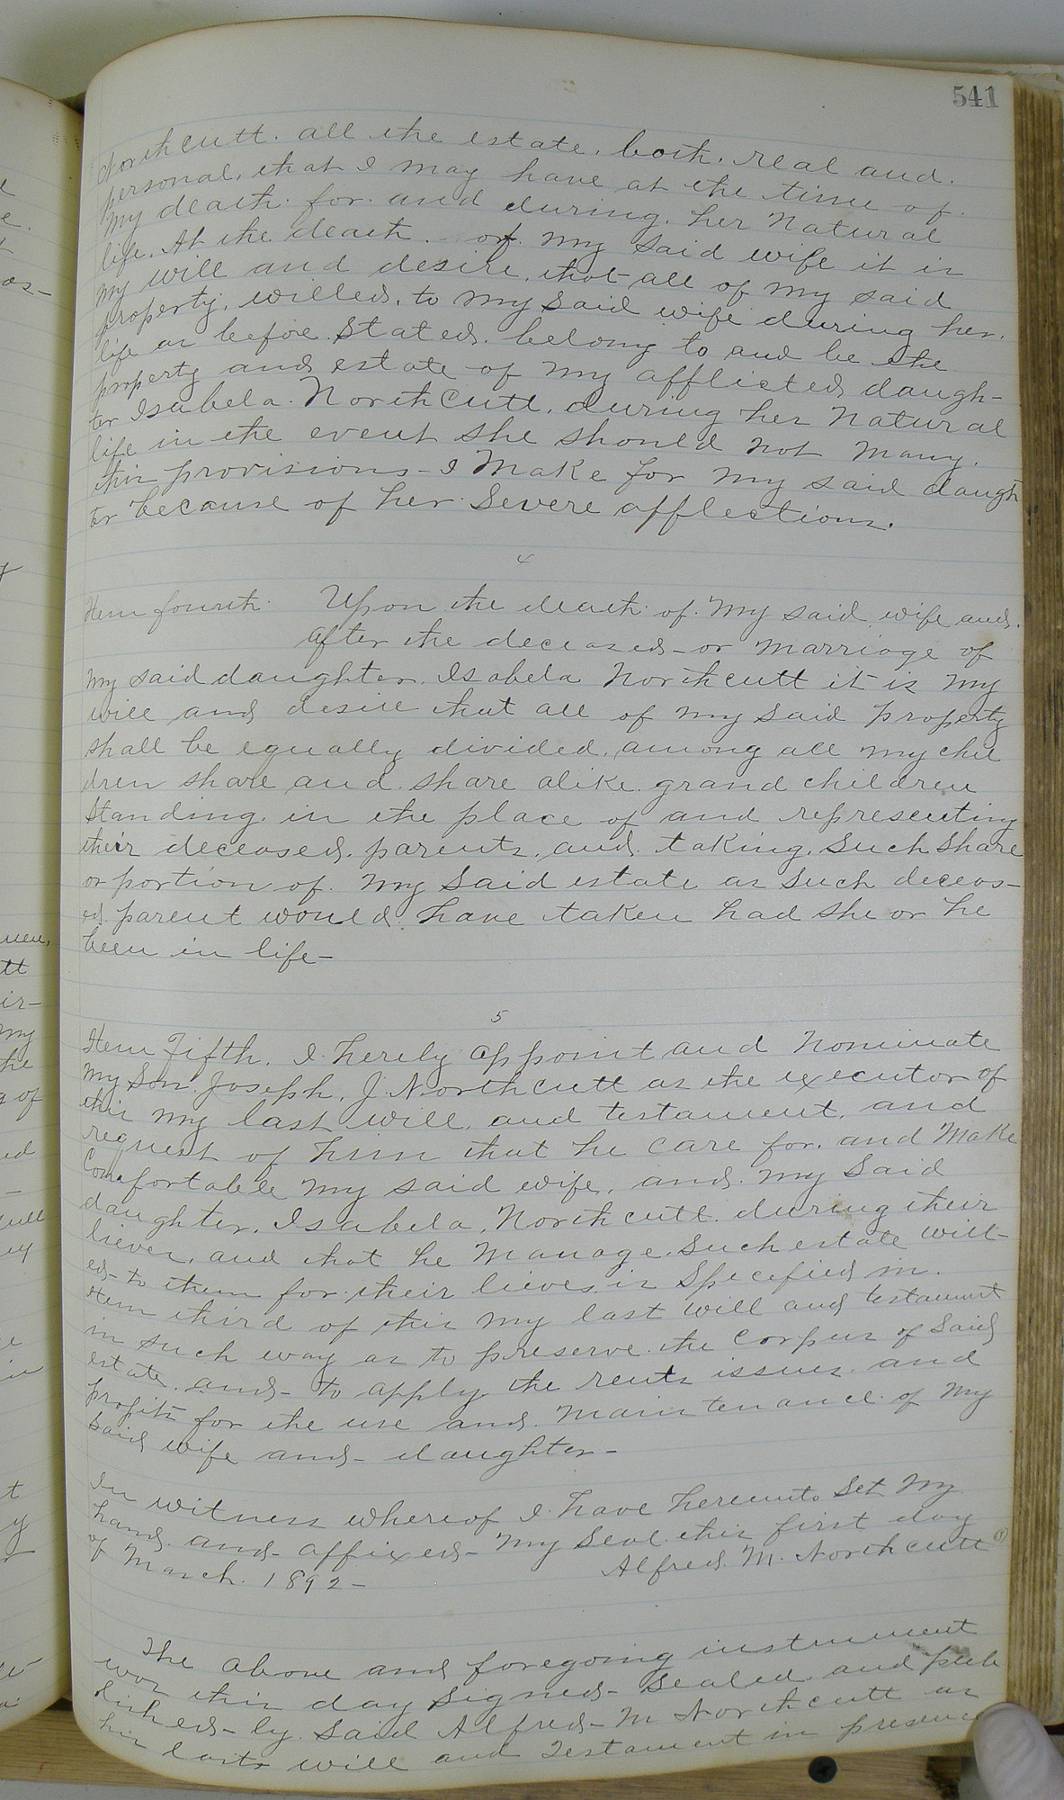 541
Northcutt. all the estate. both. real and.
personal. that I may have at the time of.
my death. for. and during. her Natural
life. At the death. of. my said wife it is
my will and desire. that all of my said
property. willed. to my said wife during her.
life as before. Stated. belong to and be the
property and estate of my afflicted daugh-
ter Isabela. Northcutt. during her Natural
life in the event she should not marry.
this provisions - I Make for my said daugh
ter because of her Severe afflections.
4
Item fourth. Upon the death of. my said wife and.
after the deceased - or marriage of
my said daughter. Isabela Northcutt it is my
will and desire that all of my said property
shall be equally divided. among all my chil
dren share and share alike. grand children
Standing. in the place of and representing
their deceased. parents. and. taking. Such share
or portion of. my said estate as such deceas-
ed parent would. have taken had she or he
been in life -
5
Item Fifth. I hereby appoint and Nominate
my Son. Joseph. J. Northcutt as the executor of
this my last will. and testament. and
request of him that he care for. and Make
Comfortable my said wife. and. my said
daughter. Isabela. Northcutt. during their
lieves. and that he Manage. Such estate will-
ed - to them for their lieves. is Specified in.
Item third of this my last will and testament
in such way as to preserve the Corpus of said
estate. and - to apply the rents issues and
profits for the use and. maintenance of my
said wife and - daughter -
In witness whereof I have hereunto Set my
hand. and - affixed - my Seal this first day
of March. 1892 -
Alfred. M. Northcutt
The above and foregoing instrument
was this day Signed - Sealed and pub
lished - by. said Alfred - M Northcutt as
his last will and Testament in presence